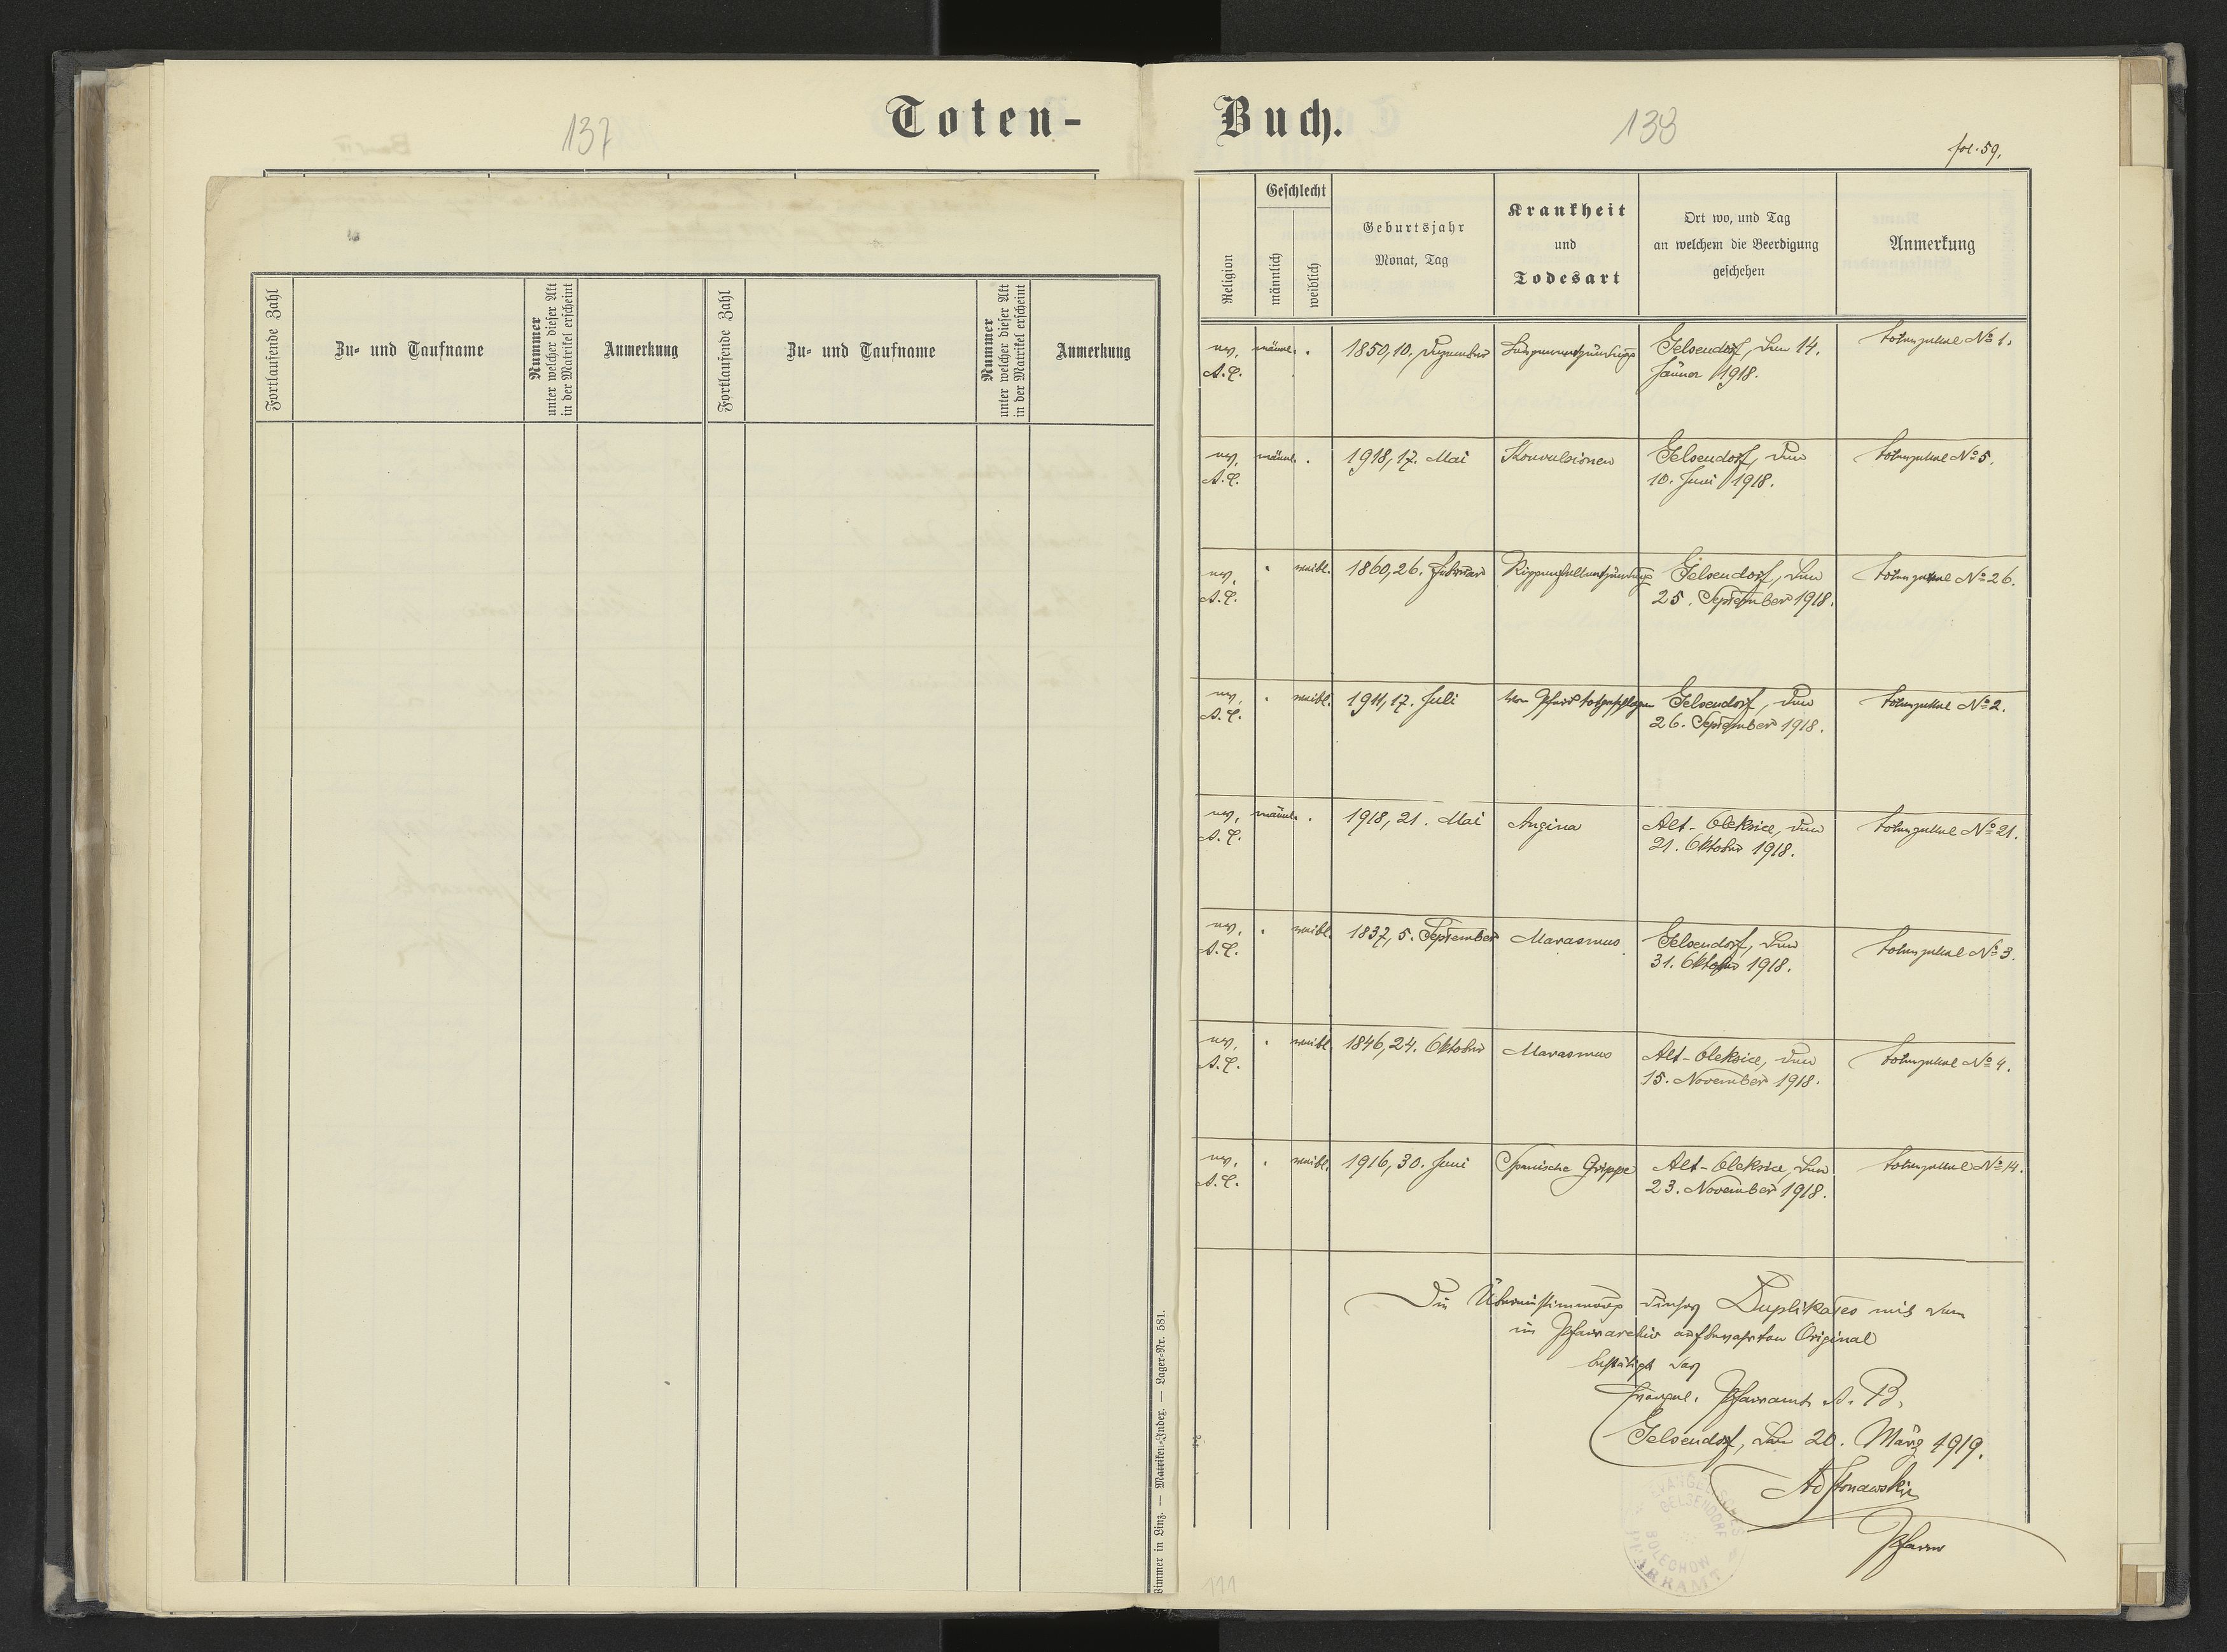 Toten-
137
Fortlaufende Zahl
Zu- und Taufname
Nummer
unter welcher dieser Akt
in der Matrikel erscheint
Anmerkung
Fortlaufende Zahl
Zu- und Taufname
Nummer
unter welcher dieser Akt
in der Matrikel erscheint
Anmerkung
Zimmer in Linz. — Matriken-Index. — Lager-Nr. 581.
Buch.
138
fol. 59.
Religion
Geschlecht
männlich
weiblich
Geburtsjahr
Monat, Tag
Krankheit
und
Todesart
Ort wo, und Tag
an welchem die Beerdigung
geschehen
Anmerkung
ev. männl. . 1850, 10. Dezember Lungenentzündung Gelsendorf, den 14. Totenzettel № 1.
A.C. Jänner 1918.
ev. männl. . 1918, 17. Mai Konvulsionen Gelsendorf, den Totenzettel № 5.
A.C. 10. Juni 1918.
ev. . weibl. 1860, 26. Februar Rippenfellentzündung Gelsendorf, den Totenzettel № 26.
A.C. 25. September 1918.
ev. . weibl. 1911, 17. Juli Vom Pferd totgeschlagen Gelsendorf, den Totenzettel № 2.
A.C. 26. September 1918.
ev. männl. . 1918, 21. Mai Angina Alt-Oleksice, den Totenzettel № 21.
A.C. 21. Oktober 1918.
ev. . weibl. 1837, 5. September Marasmus Gelsendorf, den Totenzettel № 3.
A.C. 31. Oktober 1918.
ev. . weibl. 1846, 24. Oktober Marasmus Alt-Oleksice, den Totenzettel № 4.
A.C. 15. November 1918.
ev. . weibl. 1916, 30. Juni Spanische Grippe Alt-Oleksice, den Totenzettel № 14.
A.C. 23. November 1918.
Die Übereinstimmung dieses Duplikates mit dem
im Pfarrarchiv aufbewahrten Original
bestätigt das
Evangel. Pfarramt A. B.
Gelsendorf, den 20. März 1919.
Pfarrer
EVANGELISCHES
GELSENDORF
BOLECHOW
PFARRAMT
111